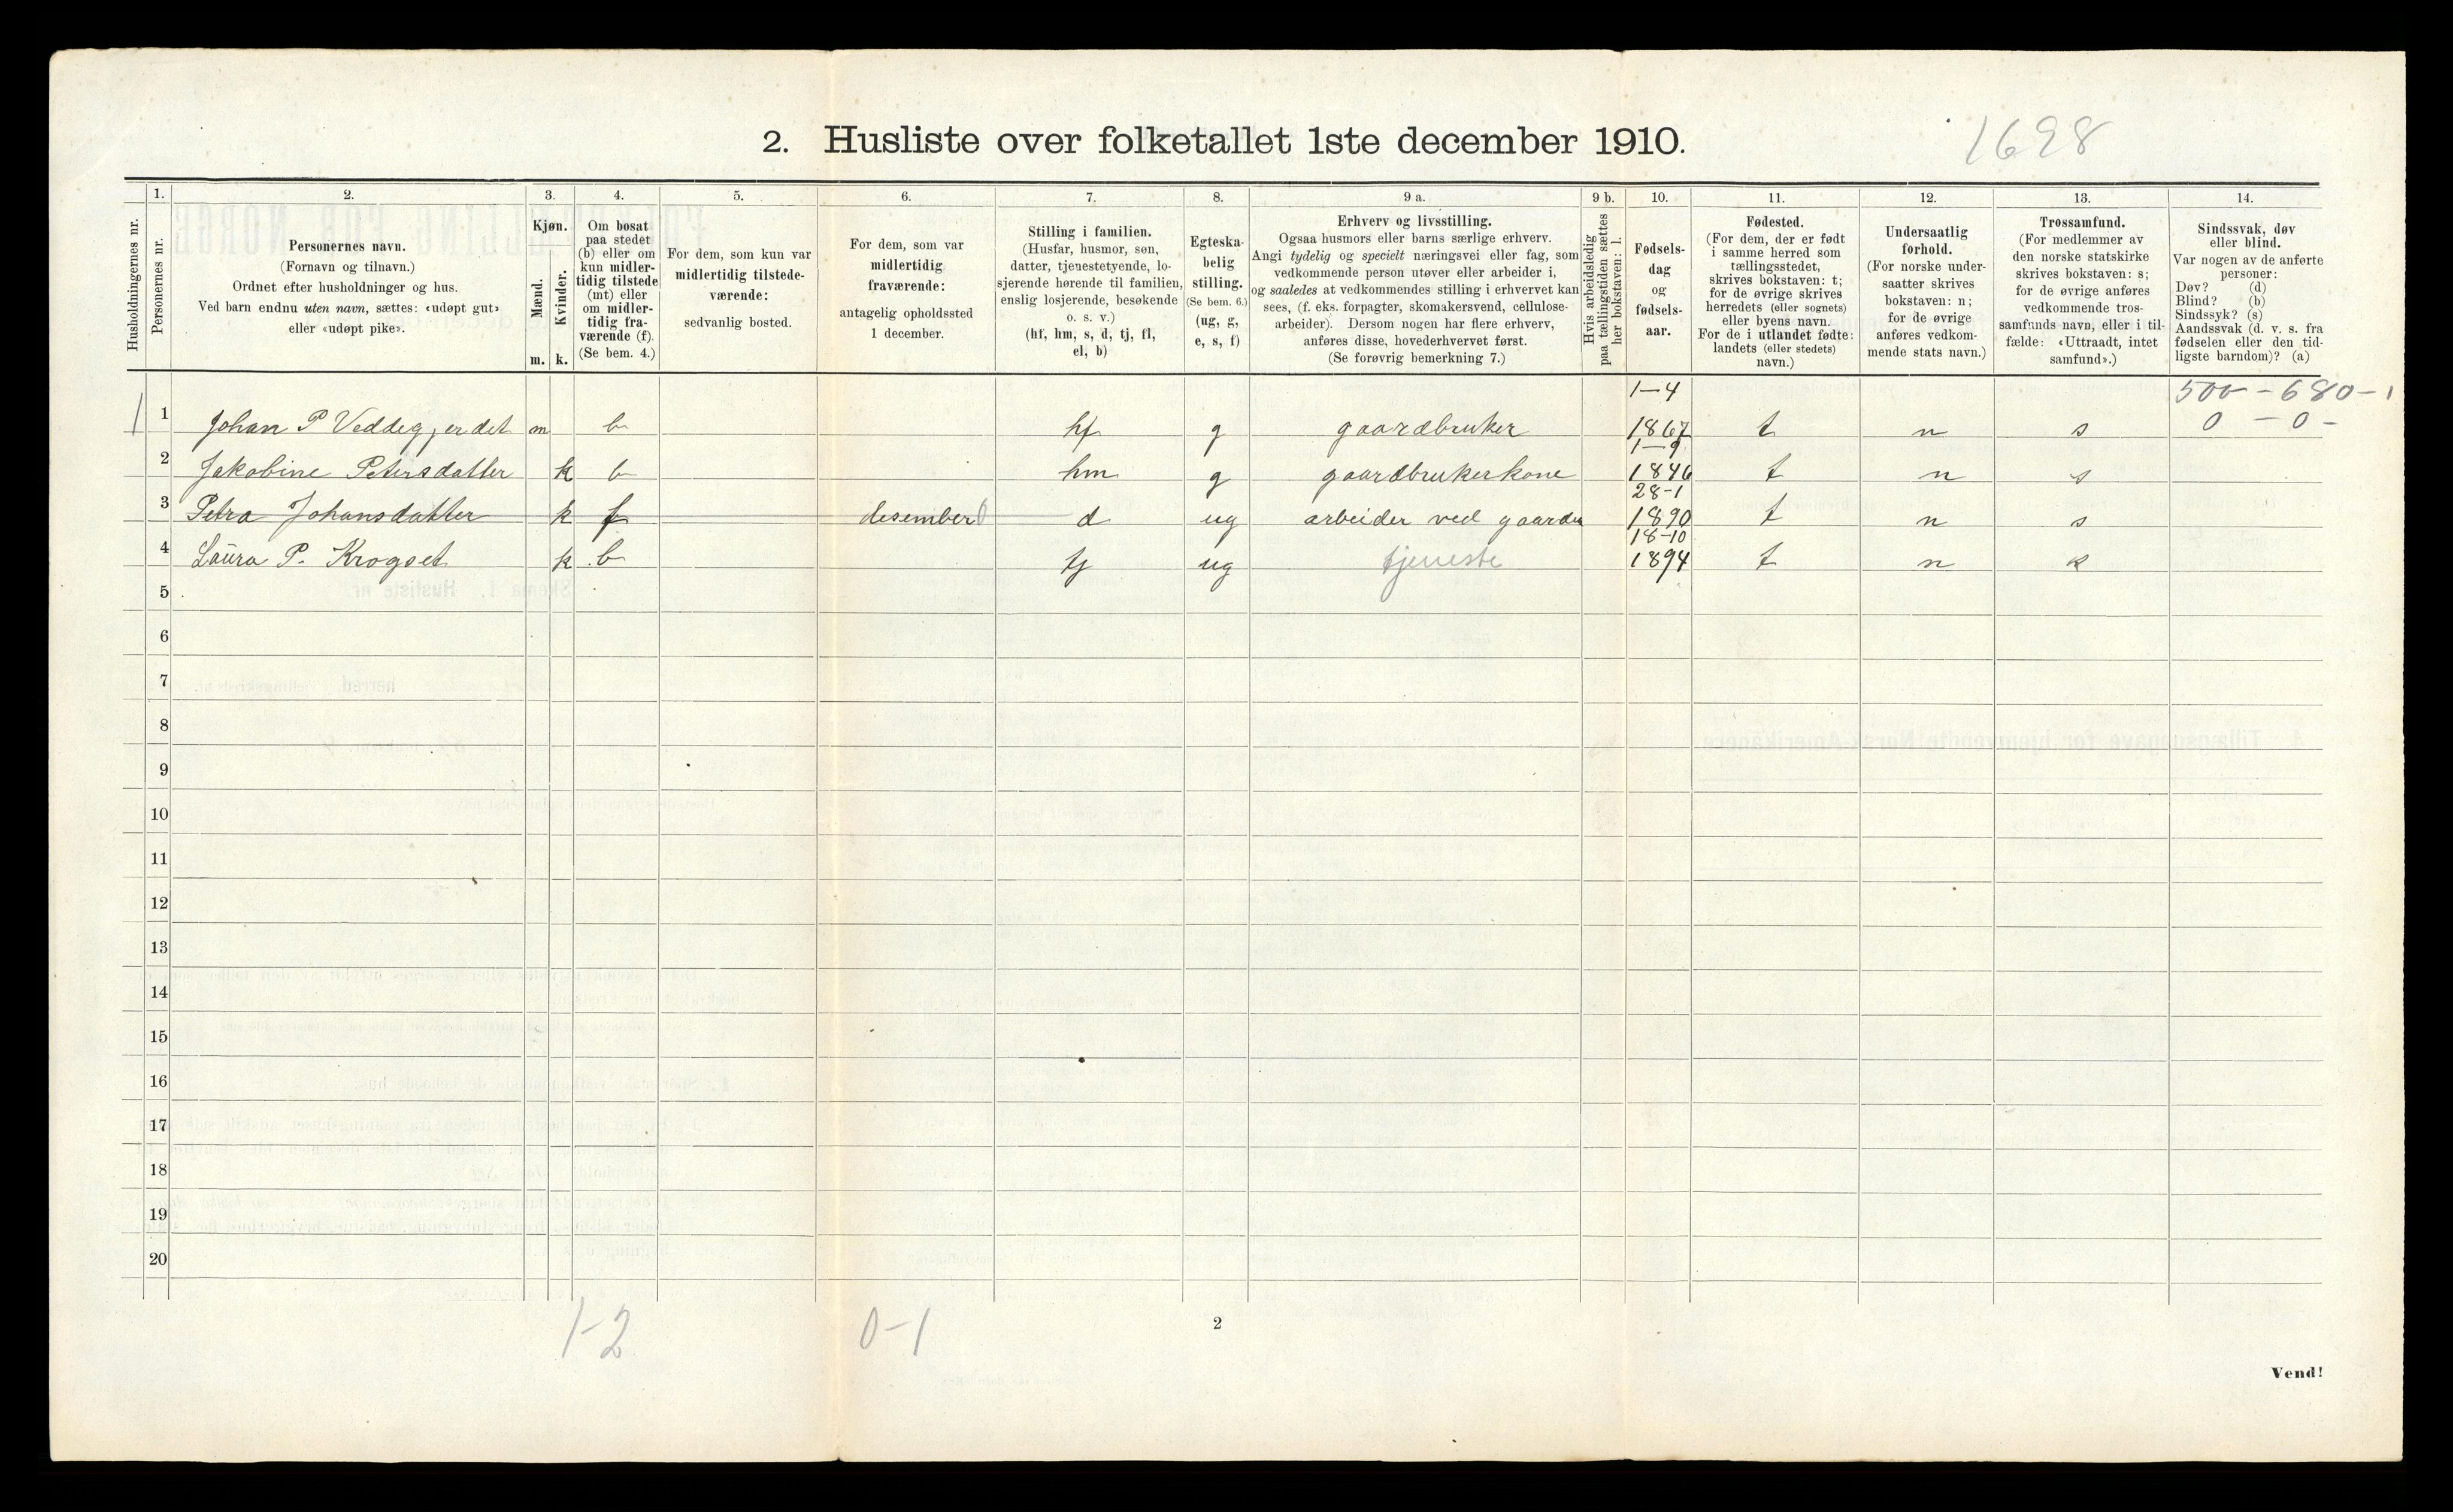 2. Husliste over folketallet 1ste december 1910.
1698
Husholdningernes nr.
1.
Personernes nr.
2.
Personernes navn.
(Fornavn og tilnavn.)
Ordnet efter husholdninger og hus.
Ved barn endnu uten navn, sættes: «udøpt gut»
eller «udøpt pike».
3.
Kjøn.
Mænd.
m.
Kvinder.
k.
4.
Om bosat
paa stedet
(b) eller om
kun midler-
tidig tilstede
(mt) eller
om midler-
tidig fra-
værende (f).
(Se bem. 4.)
5.
For dem, som kun var
midlertidig tilstede-
værende:
sedvanlig bosted.
6.
For dem, som var
midlertidig
fraværende:
antagelig opholdssted
1 december.
7.
Stilling i familien.
(Husfar, husmor, søn,
datter, tjenestetyende, lo-
sjerende hørende til familien,
enslig losjerende, besøkende
o. s. v.)
(hf, hm, s, d, tj, fl,
el, b)
8.
Egteska-
belig
stilling.
(Se bem. 6.)
(ug, g,
e, s, f)
9 a.
Erhverv og livsstilling.
Ogsaa husmors eller barns særlige erhverv.
Angi tydelig og specielt næringsvei eller fag, som
vedkommende person utøver eller arbeider i,
og saaledes at vedkommendes stilling i erhvervet kan
sees, (f. eks. forpagter, skomakersvend, cellulose-
arbeider). Dersom nogen har flere erhverv,
anføres disse, hovederhvervet først.
(Se forøvrig bemerkning 7.)
9 b.
Hvis arbeidsledig
paa tællingstiden sættes
her bokstaven: l.
10.
Fødsels-
dag
og
fødsels-
aar.
11.
Fødested.
(For dem, der er født
i samme herred som
tællingsstedet,
skrives bokstaven: t;
for de øvrige skrives
herredets (eller sognets)
eller byens navn.
For de i utlandet fødte:
landets (eller stedets)
navn.)
12.
Undersaatlig
forhold.
(For norske under-
saatter skrives
bokstaven: n;
for de øvrige
anføres vedkom-
mende stats navn.)
13.
Trossamfund.
(For medlemmer av
den norske statskirke
skrives bokstaven: s;
for de øvrige anføres
vedkommende tros-
samfunds navn, eller i til-
fælde: «Uttraadt, intet
samfund».)
14.
Sindssvak, døv
eller blind.
Var nogen av de anførte
personer:
Døv? (d)
Blind? (b)
Sindssyk? (s)
Aandssvak (d. v. s. fra
fødselen eller den tid-
ligste barndom)? (a)
500 - 680 - 1
0 - 0 -
1 1 Johan P Veddeg, er det m b hf g gaardbruker 1-4 1867 t n s
2 Jakobine Petersdatter k b hm g gaardbrukerkone 1-9 1846 t n s
3 Petra Johansdatter k f desember d ug arbeider ved gaarden 28-1 1890 t n s
4 Laura P. Krogset k b tj ug tjeneste 18-10 1894 t n
5
6
7
8
9
10
11
12
13
14
15
16
17
18
19
20
1-2
0-1
2
Vend!